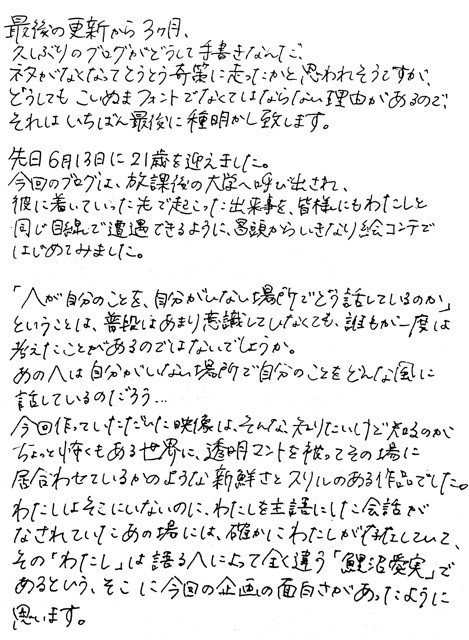 最後の更新から3ヶ月、
久しぶりのブログがどうして手書きなんだ、
ネタがなくなってとうとう奇策に走ったかと思われそうですが、
どうしてもこいぬまフォントでなくてはならない理由があるので、
それはいちばん最後に種明かし致します。
先日6月13日に21歳を迎えました。
今回のブログは、放課後の大学へ呼び出され、
彼に着いていった先で起こった出来事を、皆様にもわたしと
同じ目線で遭遇できるように、冒頭からいきなり絵コンテで
はじめてみました。
「人が自分のことを、自分がいない場所でどう話しているのか」
ということは、普段はあまり意識していなくても、誰もが一度は
考えたことがあるのではないでしょうか。
あの人は自分がいない場所で自分のことをどんな風に
話しているのだろう…
今回作っていただいた映像は、そんな、知りたいけど知るのが
ちょっと怖くもある世界に、透明マントを被ってその場に
居合わせているかのような新鮮さとスリルのある作品でした。
わたしはそこにいないのに、わたしを主語にした会話が
なされていたあの場には、確かにわたしが存在していて、
その「わたし」は語る人によって全く違う「鯉沼愛実」で
あるという、そこに今回の企画の面白さがあったように
思います。